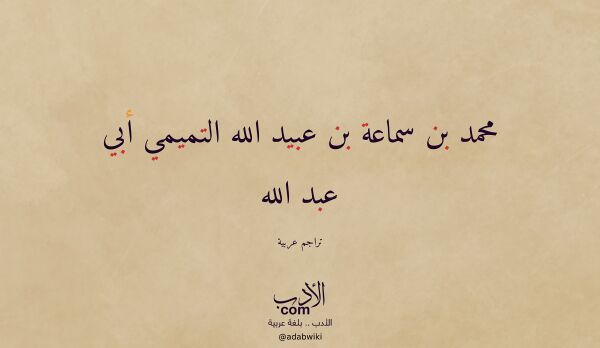 محمد بن سماعة بن عبيد الله التميمي أبي
عبد الله
تراجم عربية
الأدب
com
الأدب .. بلغة عربية
@adabwiki